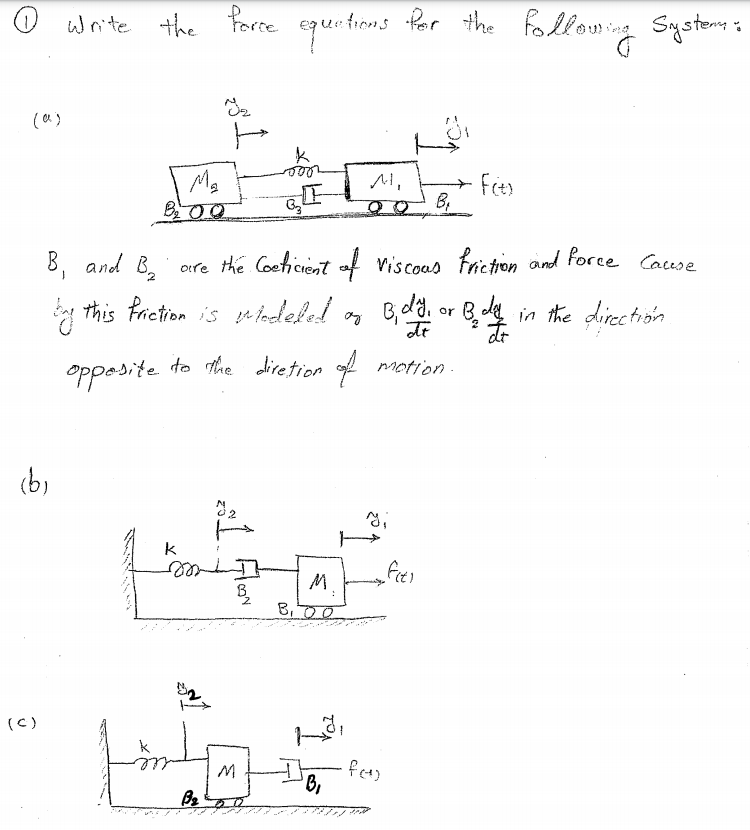 ① Write the force equations for the following System:
(a)
y₂
y₁
k
M₂
M₁
f(t)
B₂
B₃
B₁
B₁ and B₂ are the Coeficient of Viscous friction and force Cause
by this friction is Modeled as B₁ dy₁/dt or B₂ dy/dt in the direction
opposite to the diretion of motion.
(b)
y₂
y₁
k
M
f(t)
B₂
B₁
(c)
y₂
y₁
k
M
f(t)
B₁
B₂